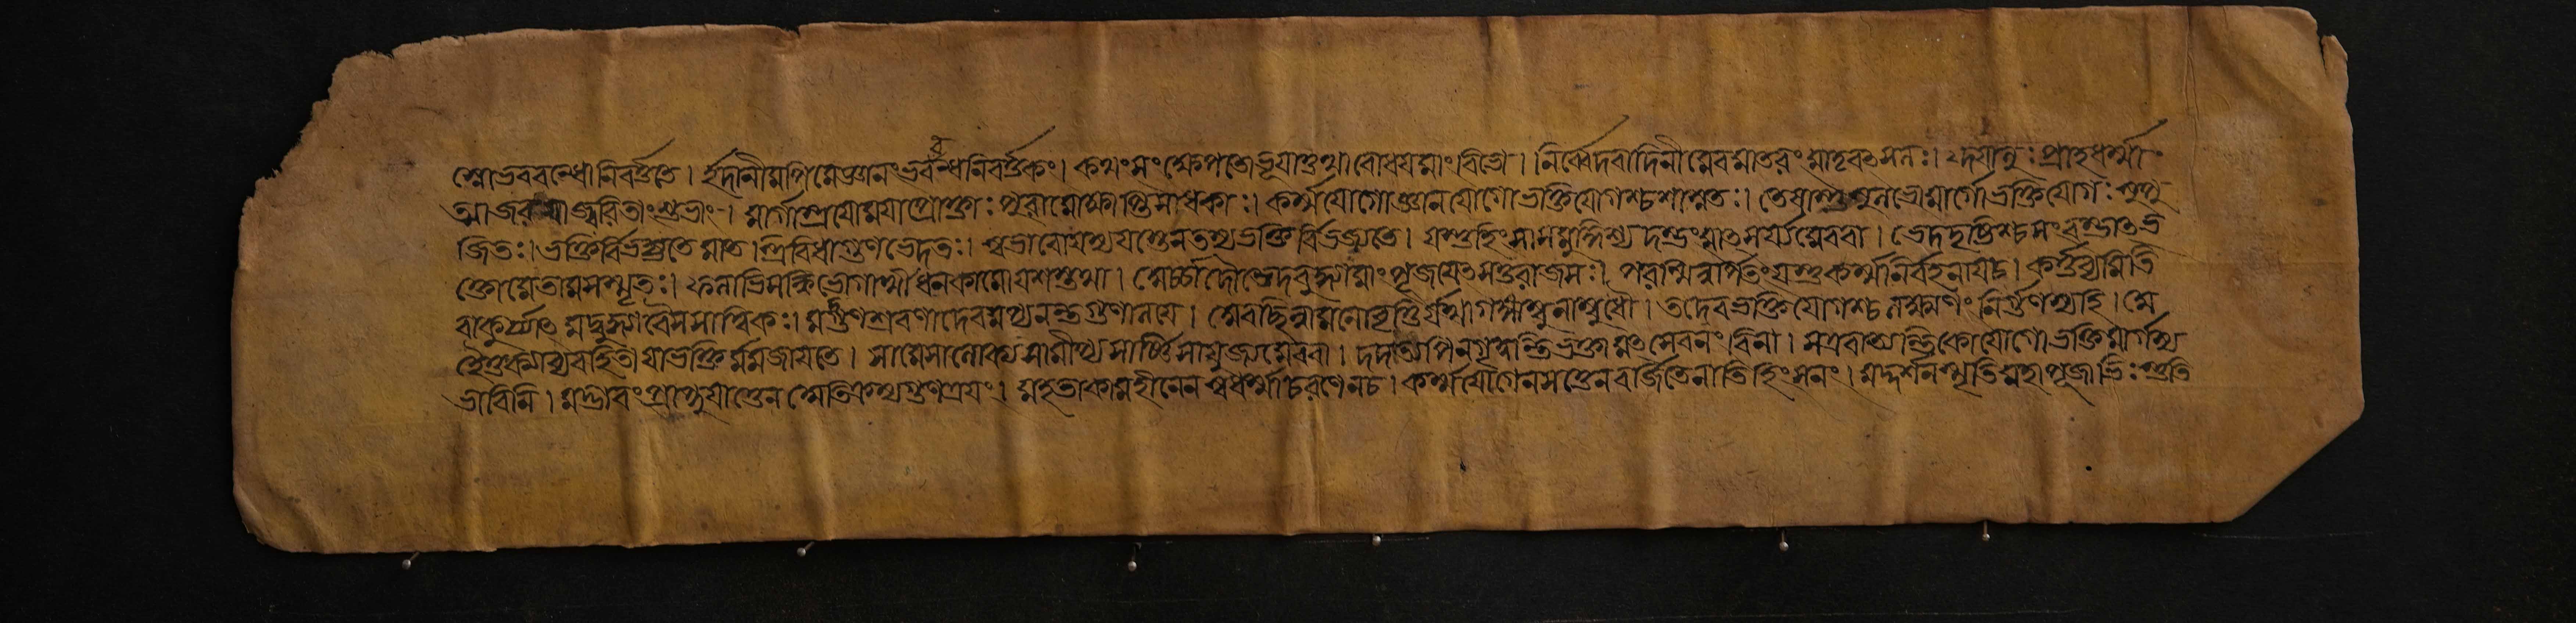 ন্মোভববন্ধো নিবর্ত্ততে । ইদানীমপি মে জ্ঞানং ভববন্ধনিবর্ত্তকং । কথং সংক্ষেপতো ভূয়াত্তথা বোধয় মাং বিভো । নির্ব্বেদবাদিনীমেবং মাতরং মাতৃবৎসলঃ । দয়ালুঃ প্রাহ ধর্ম্মা
ত্মা জরয়া জর্জ্জরিতাং শুভাং । মার্গাস্ত্রয়ো ময়া প্রোক্তাঃ পুরা মোক্ষাপ্তিসাধকাঃ । কর্ম্মযোগো জ্ঞানযোগো ভক্তিযোগশ্চ শাশ্বতঃ । তেষান্তু সুলভো মার্গো ভক্তিযোগঃ সুপূ
জিতঃ । ভক্তির্বিভজ্যতে মাত স্ত্রিবিধা গুণভেদতঃ । স্বভাবো যস্য যস্তেন তস্য ভক্তি র্বিভজ্যতে । যস্তু হিংসাং সমুদ্দিশ্য দম্ভং মাৎসর্য্যমেব বা । ভেদদৃষ্টিশ্চ সংরম্ভাৎ ভ
ক্তো মে তামসঃ স্মৃতঃ । ফলাভিসন্ধি র্ভোগার্থী ধনকামো যশস্তথা । অর্চ্চাদৌ ভেদবুদ্ধ্যা মাং পূজয়েৎ স তু রাজসঃ । পরস্মিন্নর্পিতং যস্তু কর্ম্মনির্বহনায় চ । কর্ত্তব্যমিতি
বা কুর্য্যাৎ মদ্বুদ্ধ্যা বৈ স সাত্ত্বিকঃ । মদ্গুণশ্রবণাদেব ময্যনন্তগুণালয়ে । অবিচ্ছিন্না মনোবৃত্তি র্যথা গঙ্গাম্বুনোম্বুধৌ । তদেব ভক্তিযোগস্য লক্ষণং নির্গুণস্য হি । অ
হৈতুক্যব্যবহিতা যা ভক্তির্ম্মম জায়তে । সা মে সালোক্যসামীপ্যসার্ষ্টিসাযুজ্যমেব বা । দদাত্যপি ন গৃহ্ণন্তি ভক্তা মৎসেবনং বিনা । স এবাত্যন্তিকো যোগো ভক্তিমার্গস্য
ভাবিনি । মদ্ভাবং প্রাপ্নুয়াত্তেন অতিক্রম্য গুণত্রয়ং । মহতা কামহীনেন স্বধর্ম্মাচরণেন চ । কর্ম্মযোগেন সত্তেন বর্জিতেনাতিহিংসনং । মদ্দর্শনস্তুতিমহাপূজাভিঃ স্তুতি